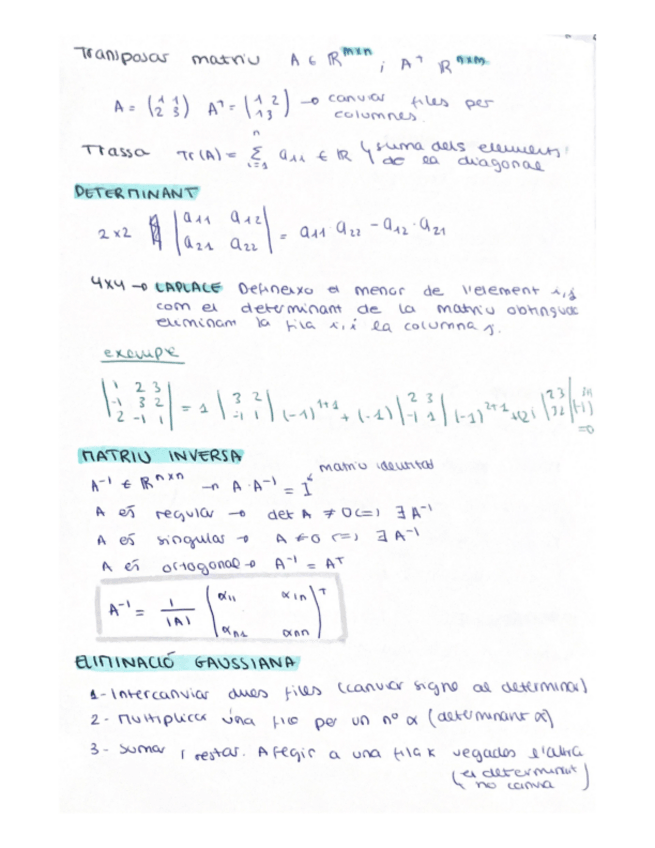 Transposar matriu A ∈ ℝ^{m×n} ; A^T ℝ^{n×m}
A = (1 1; 2 3) A^T = (1 2; 1 3) → canviar files per
columnes.
Trassa Tr(A) = Σ_{i=1}^{n} a_{11} ∈ ℝ ↳ suma dels elements
de la diagonal
DETERMINANT
2x2 |a_{11} a_{12}; a_{21} a_{22}| = a_{11} · a_{22} - a_{12} · a_{21}
4x4 → LAPLACE Defineixo el menor de l'element i,j
com el determinant de la matriu obtinguda
eliminam la fila i, i la columna j.
exemple
|1 2 3; -1 3 2; 2 -1 1| = 1 |3 2; -1 1| (-1)^{1+1} + (-1) |2 3; -1 1| (-1)^{2+1} +2 |2 3; 3 2| (-1)
=0
MATRIU INVERSA
matriu identitat
A^{-1} ∈ ℝ^{n×n} → A · A^{-1} = I
A és regular → det A ≠ 0 (=) ∃ A^{-1}
A és singular → A ≠ 0 (=) ∃ A^{-1}
A és ortogonal → A^{-1} = A^T
A^{-1} = 1/|A| (α_{11} α_{1n}; α_{n1} α_{nn})^T
ELIMINACIÓ GAUSSIANA
1- Intercanviar dues files (canviar signe al determinant)
2- Multiplicar una fila per un nº α (determinant α)
3- Sumar i restar. Afegir a una fila k vegades l'altra
(↳ el determinant)
no canvia